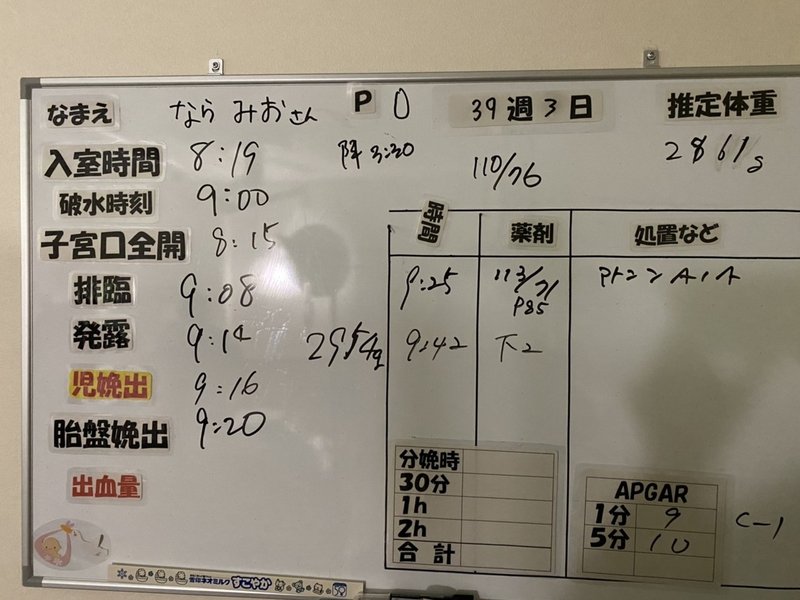 なまえ なら みおさん P 0 39週3日 推定体重
入室時間 8:19 陣 3:30 110/76 2861g
破水時刻 9:00
子宮口全開 8:15
時間 薬剤 処置など
排臨 9:08
9:25 113/71
P85
発露 9:14 2954g 9:42
児娩出 9:16
胎盤娩出 9:20
出血量
分娩時
30分
1h
2h
合計
APGAR
1分 9 C-1
5分 10
雪印ネオミルク すこやか